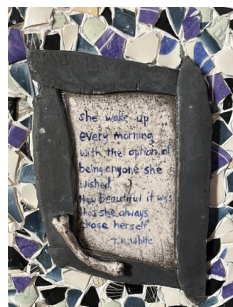 she woke up
every morning
with the option of
being anyone she
wished.
How beautiful it was
that she always
chose herself
T.K. White